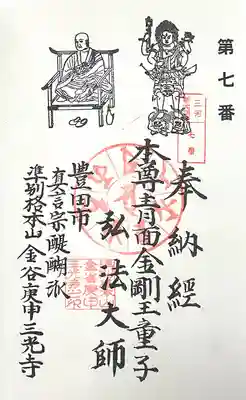 第七番
三河
七番
奉納経
本尊青面金剛王童子
弘法大師
豊田市
真言宗醍醐派
準別格本山 金谷庚申三光寺